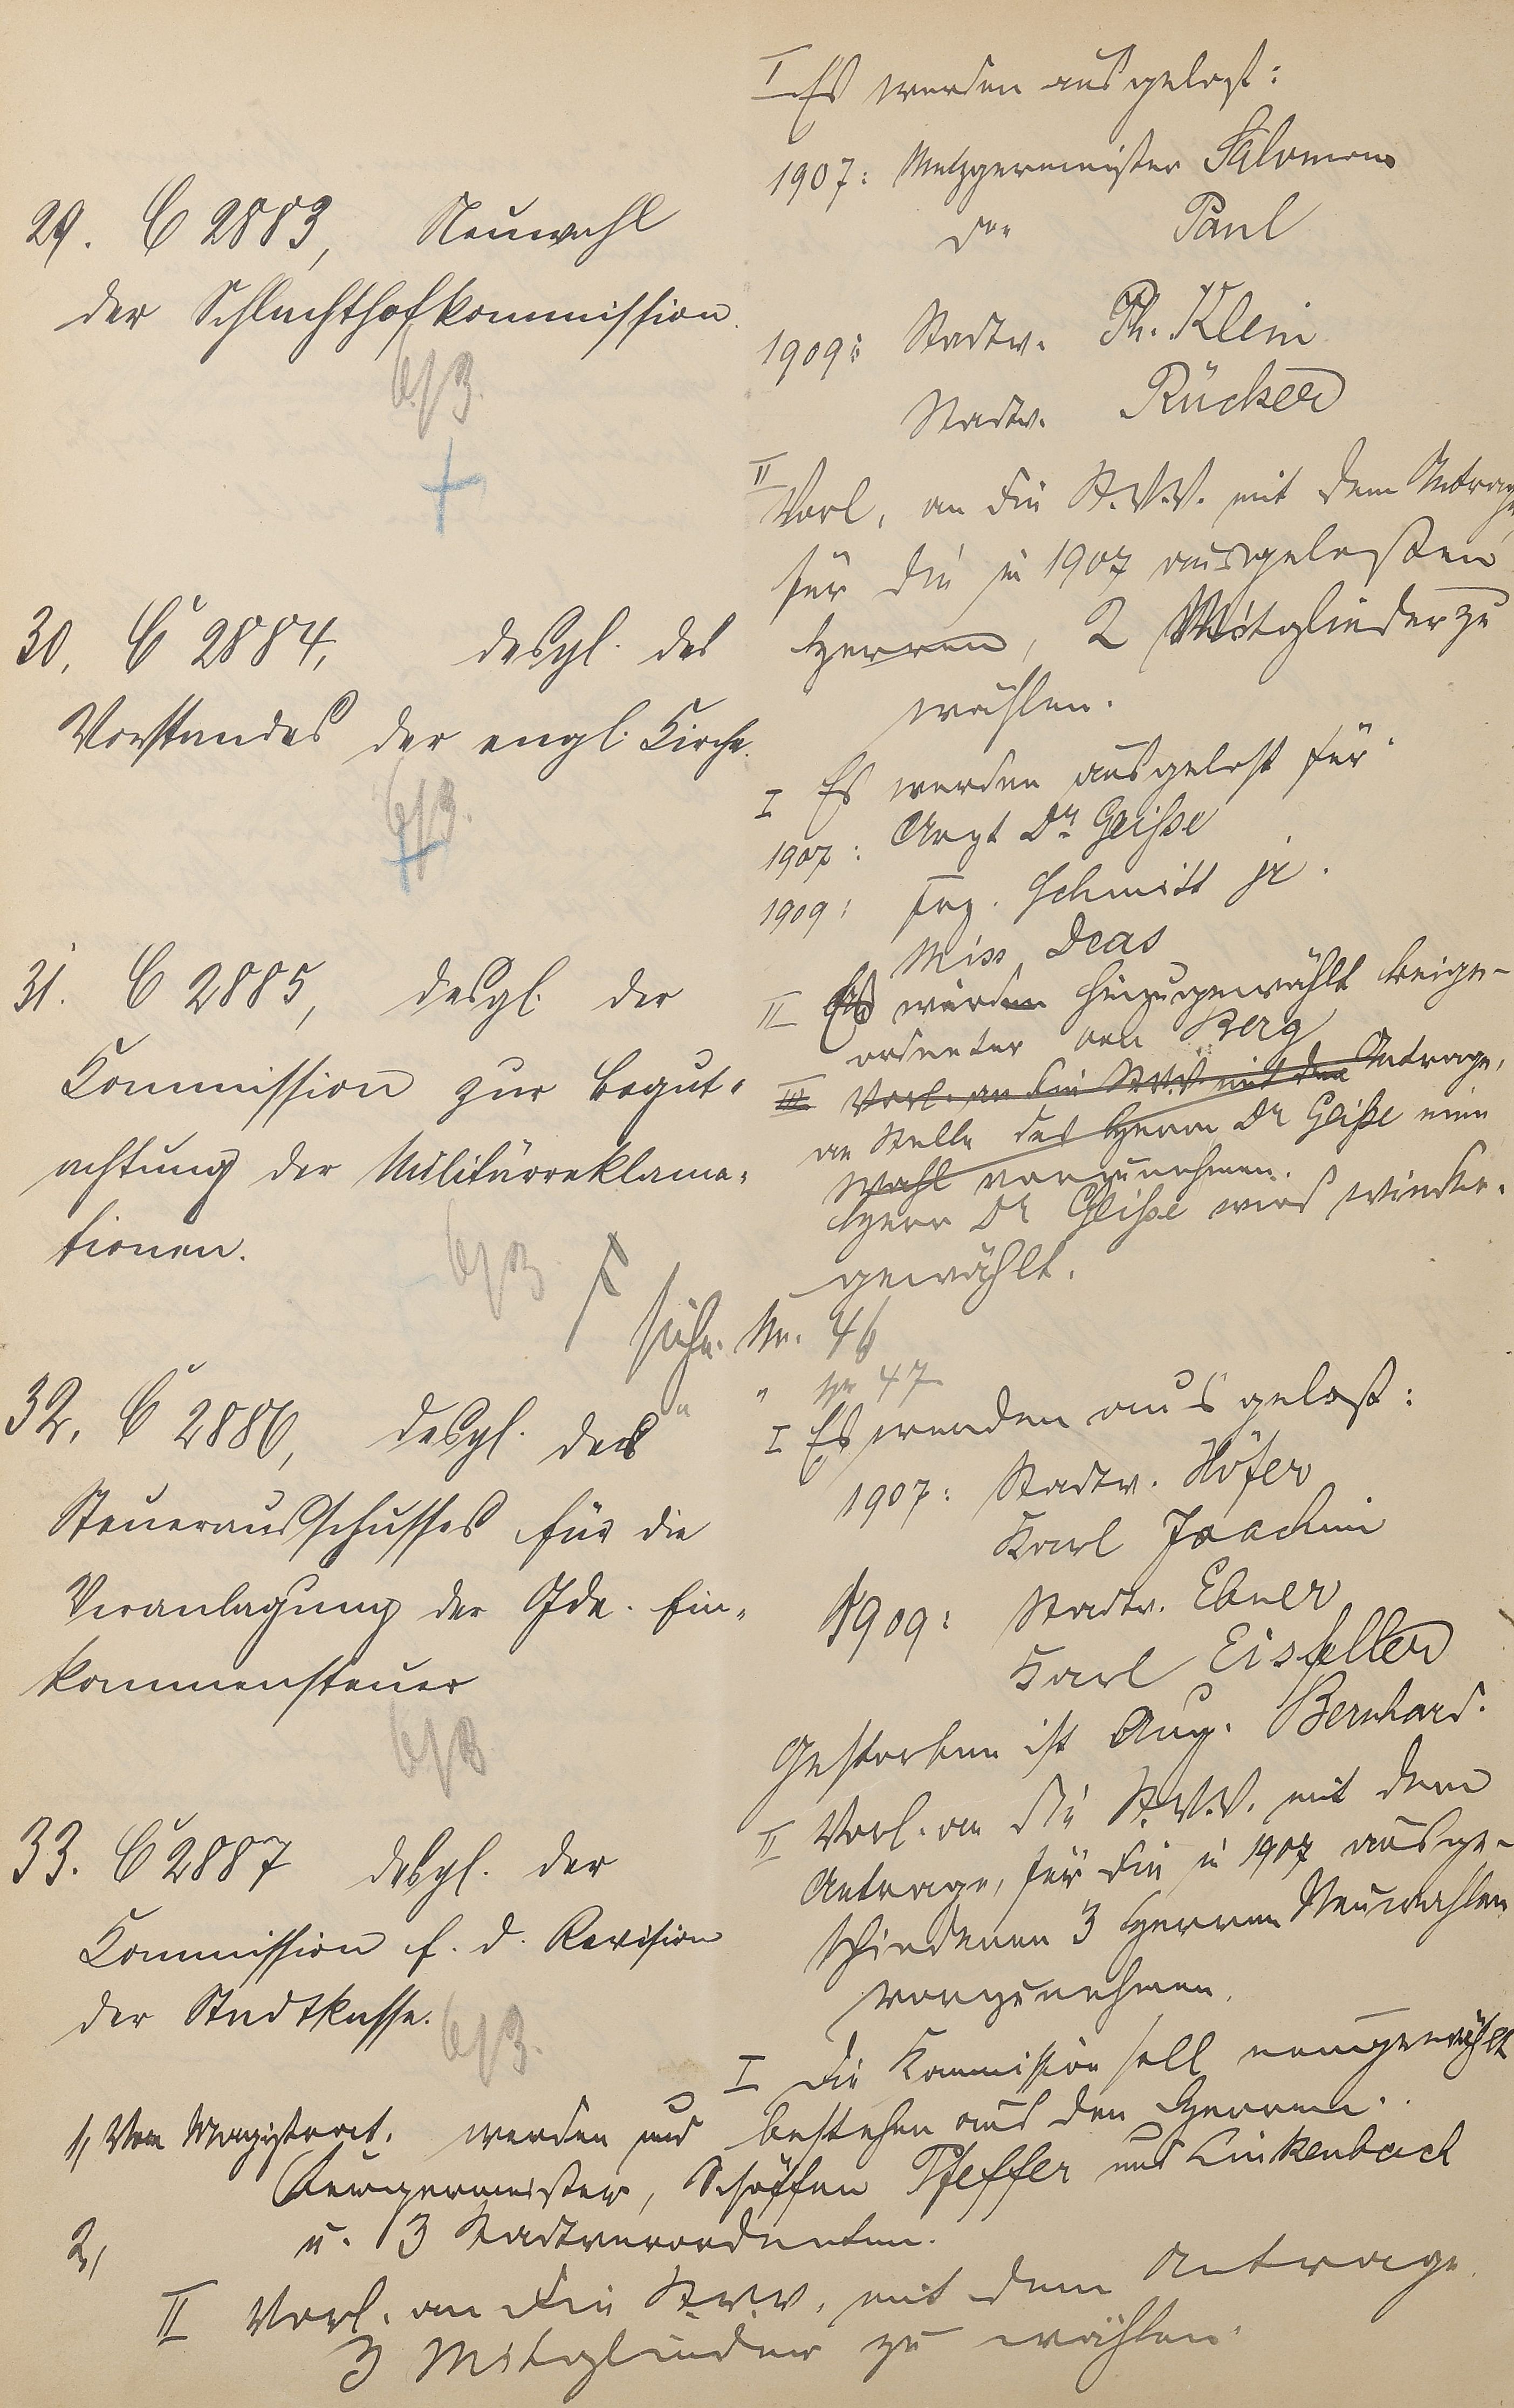 29. C 2883, Neuwahl
der Schlachthofkommission.
I Es werden ausgelost:
1907: Metzgermeister Salomon
do " Paul
1909: Stadtv. Ph. Klein
Stadtv. Rücker
II Vorl. an die St.V.V. mit dem Antrage
für die in 1907 ausgelosten
Herren, 2 Mitglieder zu
wählen.
30. C 2884, desgl. des
Vorstandes der engl. Kirche.
I Es werden ausgelost für
1907: Arzt Dr. Gliße
1909: Frz. Schmitt jr.
Miss Deas
II Es würden hinzugewählt Beige-
ordneter von Berg
III Vorl. an die St.V.V. mit dem Antrage,
an Stelle des Herrn Dr Gliße eine
Wahl vorzunehmen.
Herr Dr Gliße wird wieder-
gewählt.
31. C 2885, desgl. der
Commission zur Begut-
achtung der Militärreklama-
tionen.
siehe Nr. 46
" Nr 47
32. C 2886, desgl. des
Steuerausschusses für die
Veranlagung der Gde. Ein-
kommensteuer
I Es werden ausgelost:
1907: Stadtv. Höfer
Karl Joachim
1909: Stadtv. Ebner
Karl Eisfeller
Gestorben ist Aug. Bernhard.
II Vorl. an die St.V.V. mit dem
Antrage, für die in 1907 ausge-
schiedenen 3 Herren Neuwahlen
vorzunehmen.
33. C 2887 desgl. der
Commission f. d. Revision
der Stadtkasse.
I Die Kommission soll neugewählt
1, Vom Magistrat. werden und bestehen aus den Herren
Bürgermeister, Schöffen Pfeffer und Linkenbach
2, u. 3 Stadtverordneten.
II Vorl. an die St.V.V. mit dem Antrage
3 Mitglieder zu wählen.